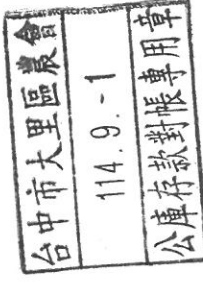 台中市大里區農會
114.9.-1
公庫存款對帳專用章